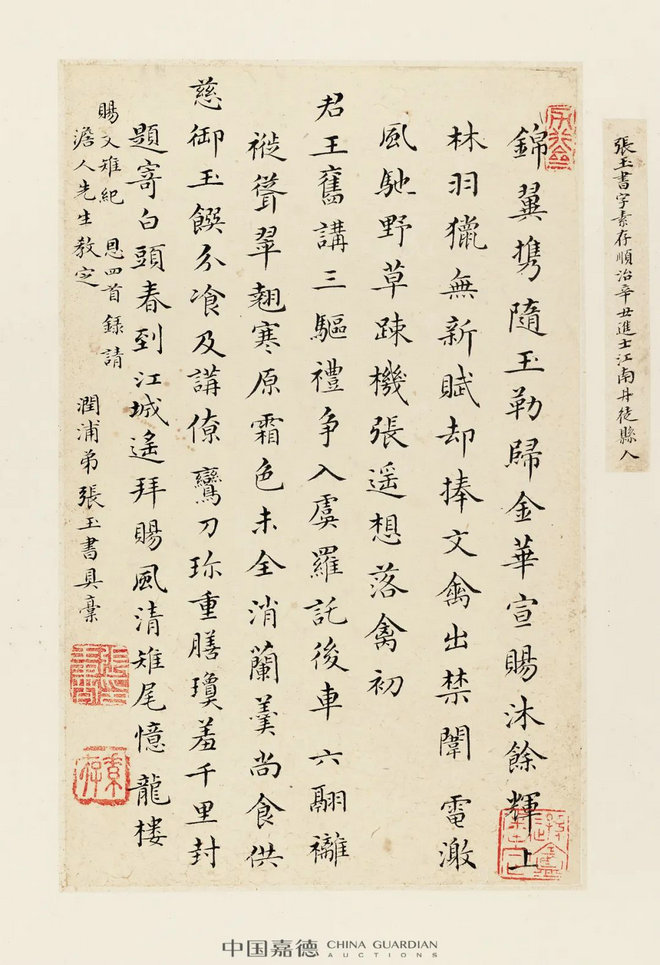 張玉書字素存順治辛丑進士江南丹徒縣人
錦翼携隨玉勒歸金華宣賜沐餘輝上
林羽獵無新賦却捧文禽出禁闈 電激
風馳野草踈機張遥想落禽初
君王舊講三驅禮爭入虞羅託後車 六翮褵
褷聳翠翹寒原霜色未全消蘭羹尚食供
慈御玉饌分飡及講僚 鸞刀珎重膳瓊羞千里封
題寄白頭春到江城遙拜賜風清雉尾憶龍楼
賜文雉紀 恩四首錄請
澹人先生教定 潤浦弟張玉書具藁
素存
中国嘉德 CHINA GUARDIAN
AUCTIONS